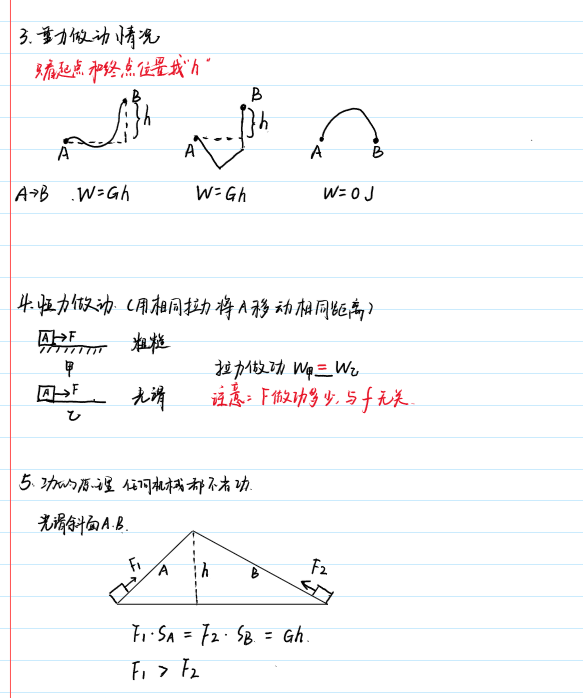 3. 重力做功情况
只看起点和终点位置找"h"
B
h
A
B
h
A
A
B
A→B . W=Gh
W=Gh
W=0J
4. 恒力做功 (用相同拉力将A移动相同距离)
A →F 粗糙
甲
拉力做功 W甲=W乙
A →F 光滑
注意: F做功多少, 与f无关.
乙
5. 功的原理 任何机械都不省功.
光滑斜面A.B.
F₁
A
h
B
F₂
F₁·SA = F₂·SB = Gh.
F₁ > F₂